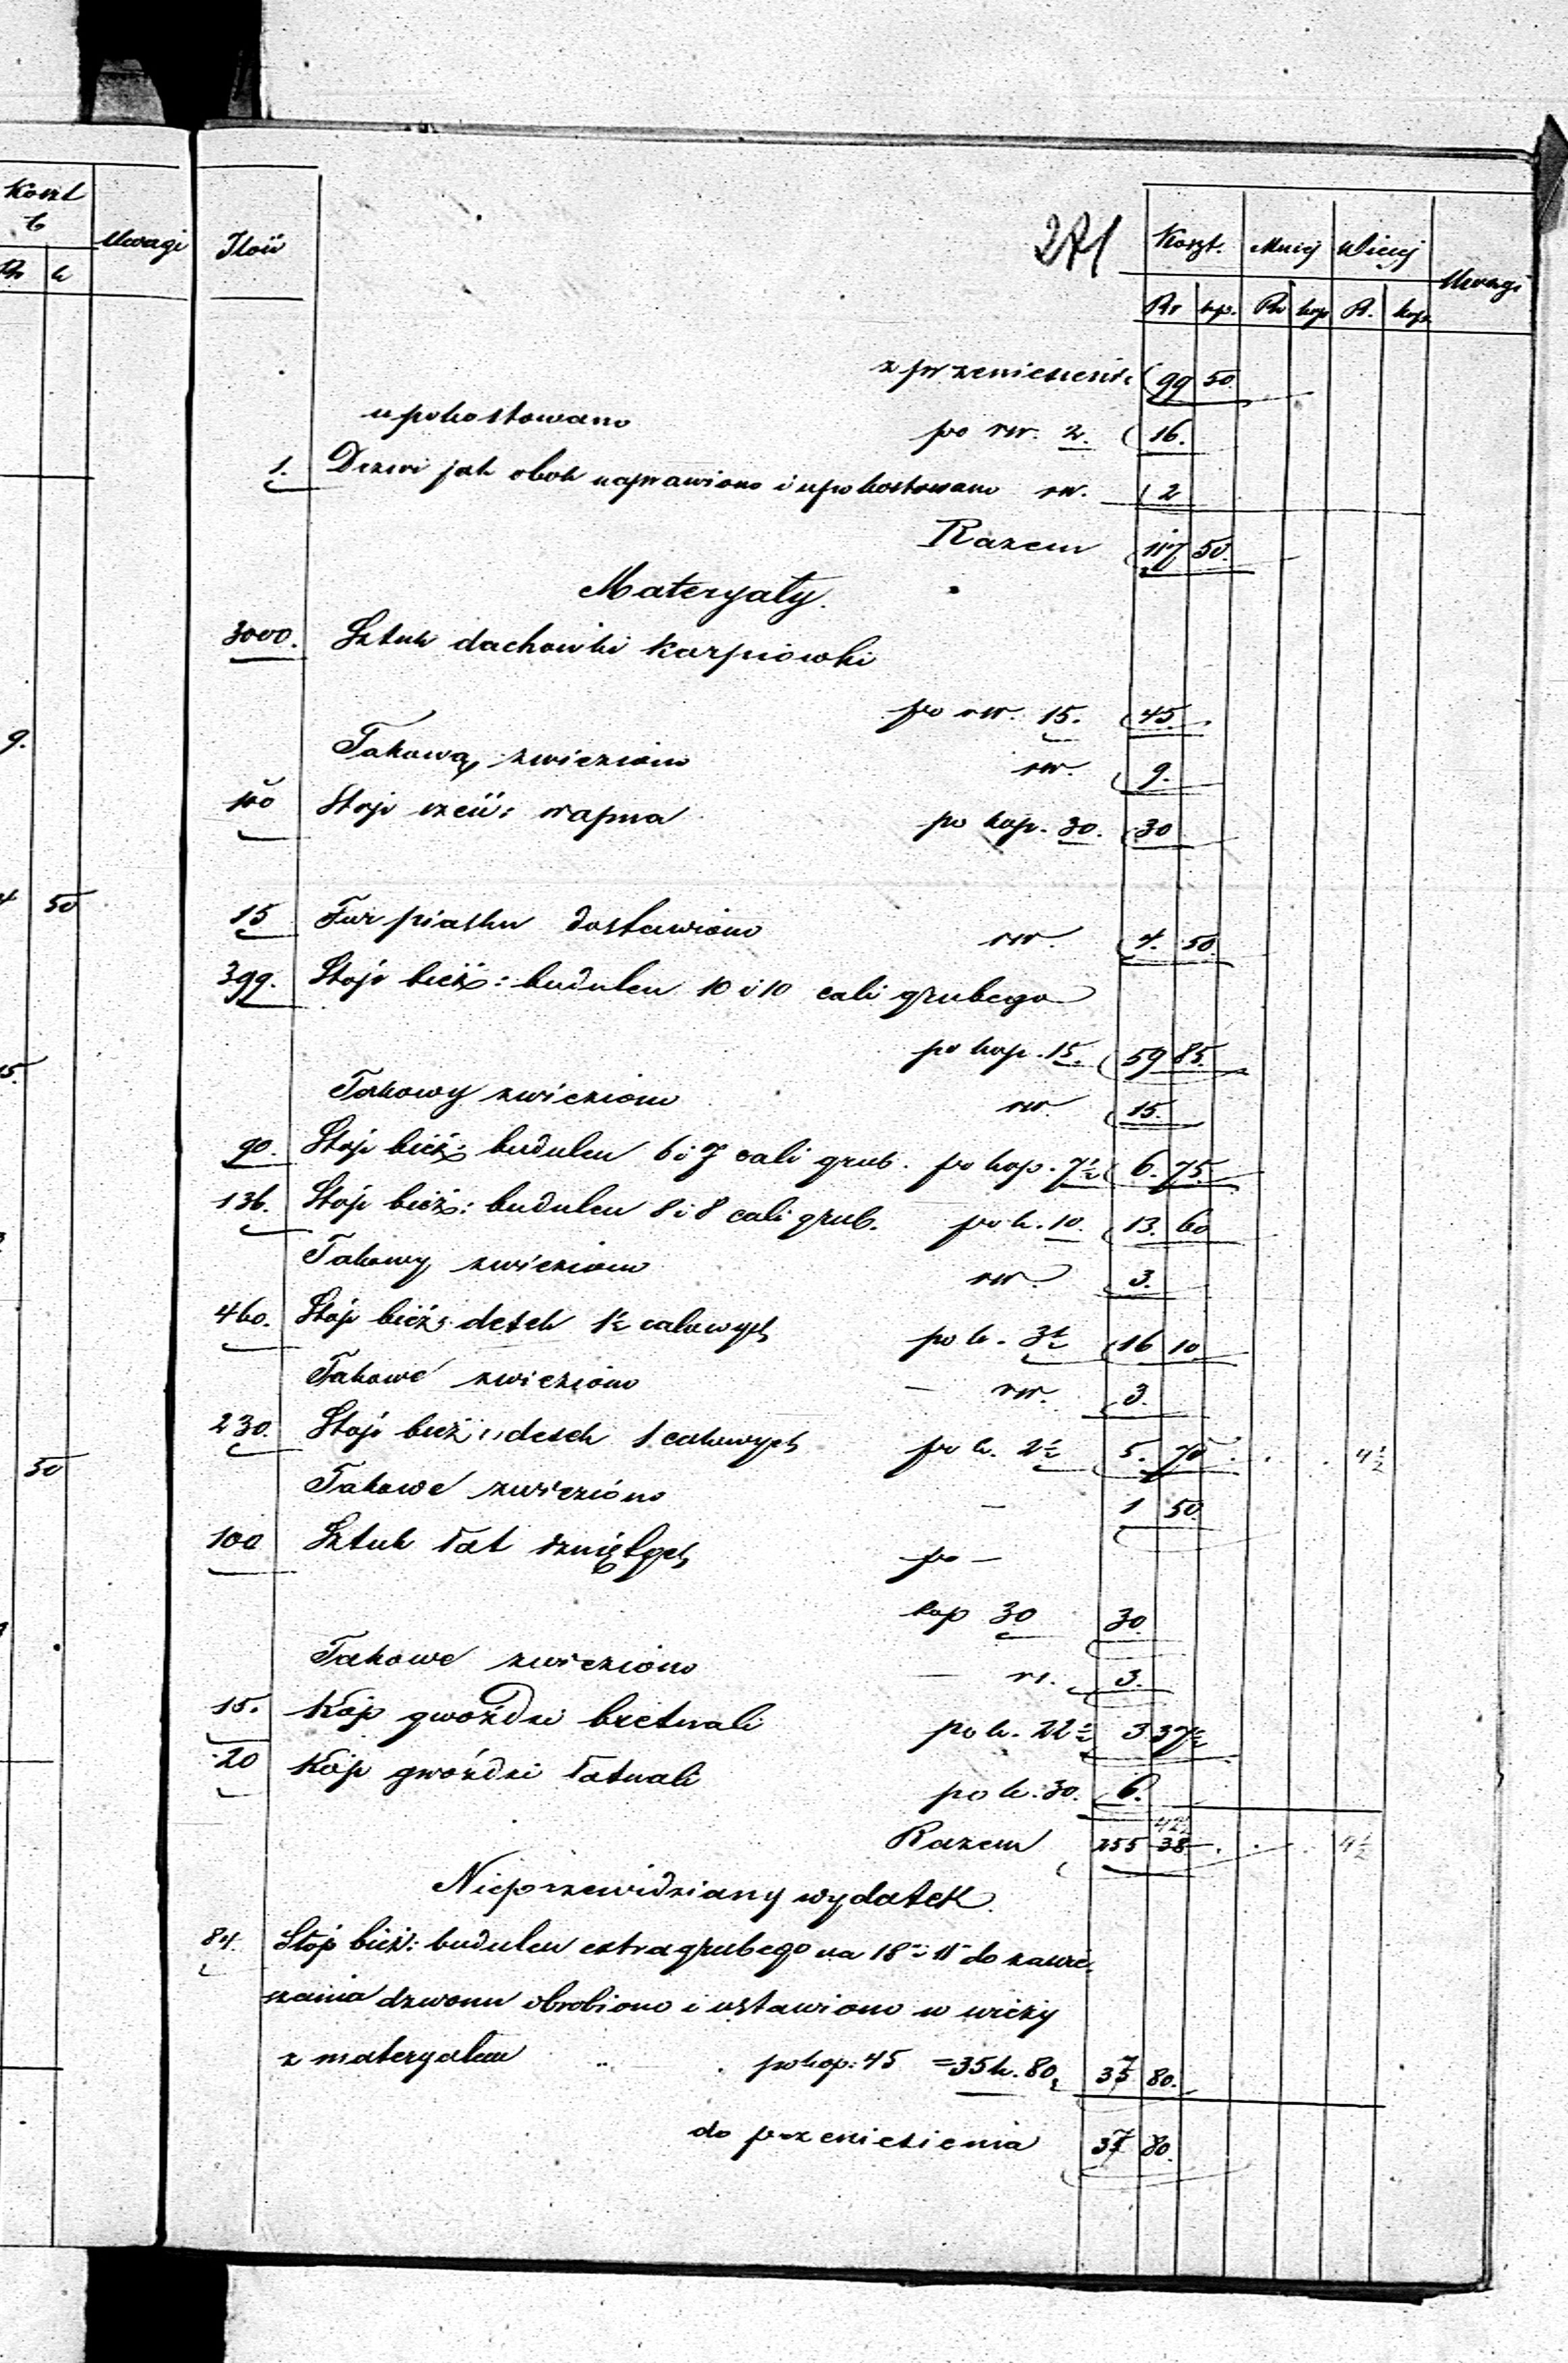 Koszt
Uwagi
Rs k
9.
4 50
15.
50
271
Ilość Koszt. Mniej Więcej Uwagi
Rs kop. Rs kop R. kop.
z przeniesienia 99 50.
upokostowano po rsr. 2. 16.
1. Drzwi jak obok naprawiono i upokostowano rsr. 2
Razem 117 50.
Materyały.
3000. Sztuk dachówki karpiówki
po rsr. 15. 45.
Takową zwieziono rsr. 9.
100 Stóp sześć: wapna po kop. 30. 30
15 Fur piasku dostawiono rsr. 4. 50.
399. Stóp bież: budulcu 10 i 10 cali grubego
po kop. 15. 59 85.
Takowy zwieziono rsr. 15.
90. Stóp bież: budulcu 6 i 7 cali grub. po kop. 7½ 6. 75.
136. Stóp bież: budulcu 8 i 8 cali grub. po k. 10. 13. 60
Takowy zwieziono rsr. 3.
460. Stóp bież: desek 1½ calowych po k. 3½ 16 10.
Takowe zwieziono — rsr. 3.
230. Stóp bież: desek 1 calowych po k. 2½ 5. 70. 4½
Takowe zwieziono — 1 50.
100 Sztuk łat rzniętych po —
kop 30 30.
Takowe zwieziono — rs. 3.
15. Kóp gwoździ bretnali po k. 22½ 3 37½
20 Kóp gwoździ łatnali po k. 30. 6.
42½
Razem 255 38 4½
Nieprzewidziany wydatek.
84. Stóp bież: budulcu extra grubego na 18" i 11" do zawie-
szania dzwonu obrobiono i ustawiono w wieży
z materyałem po kop: 45 = 35 k. 80, 37 80.
do przeniesienia 37 80.